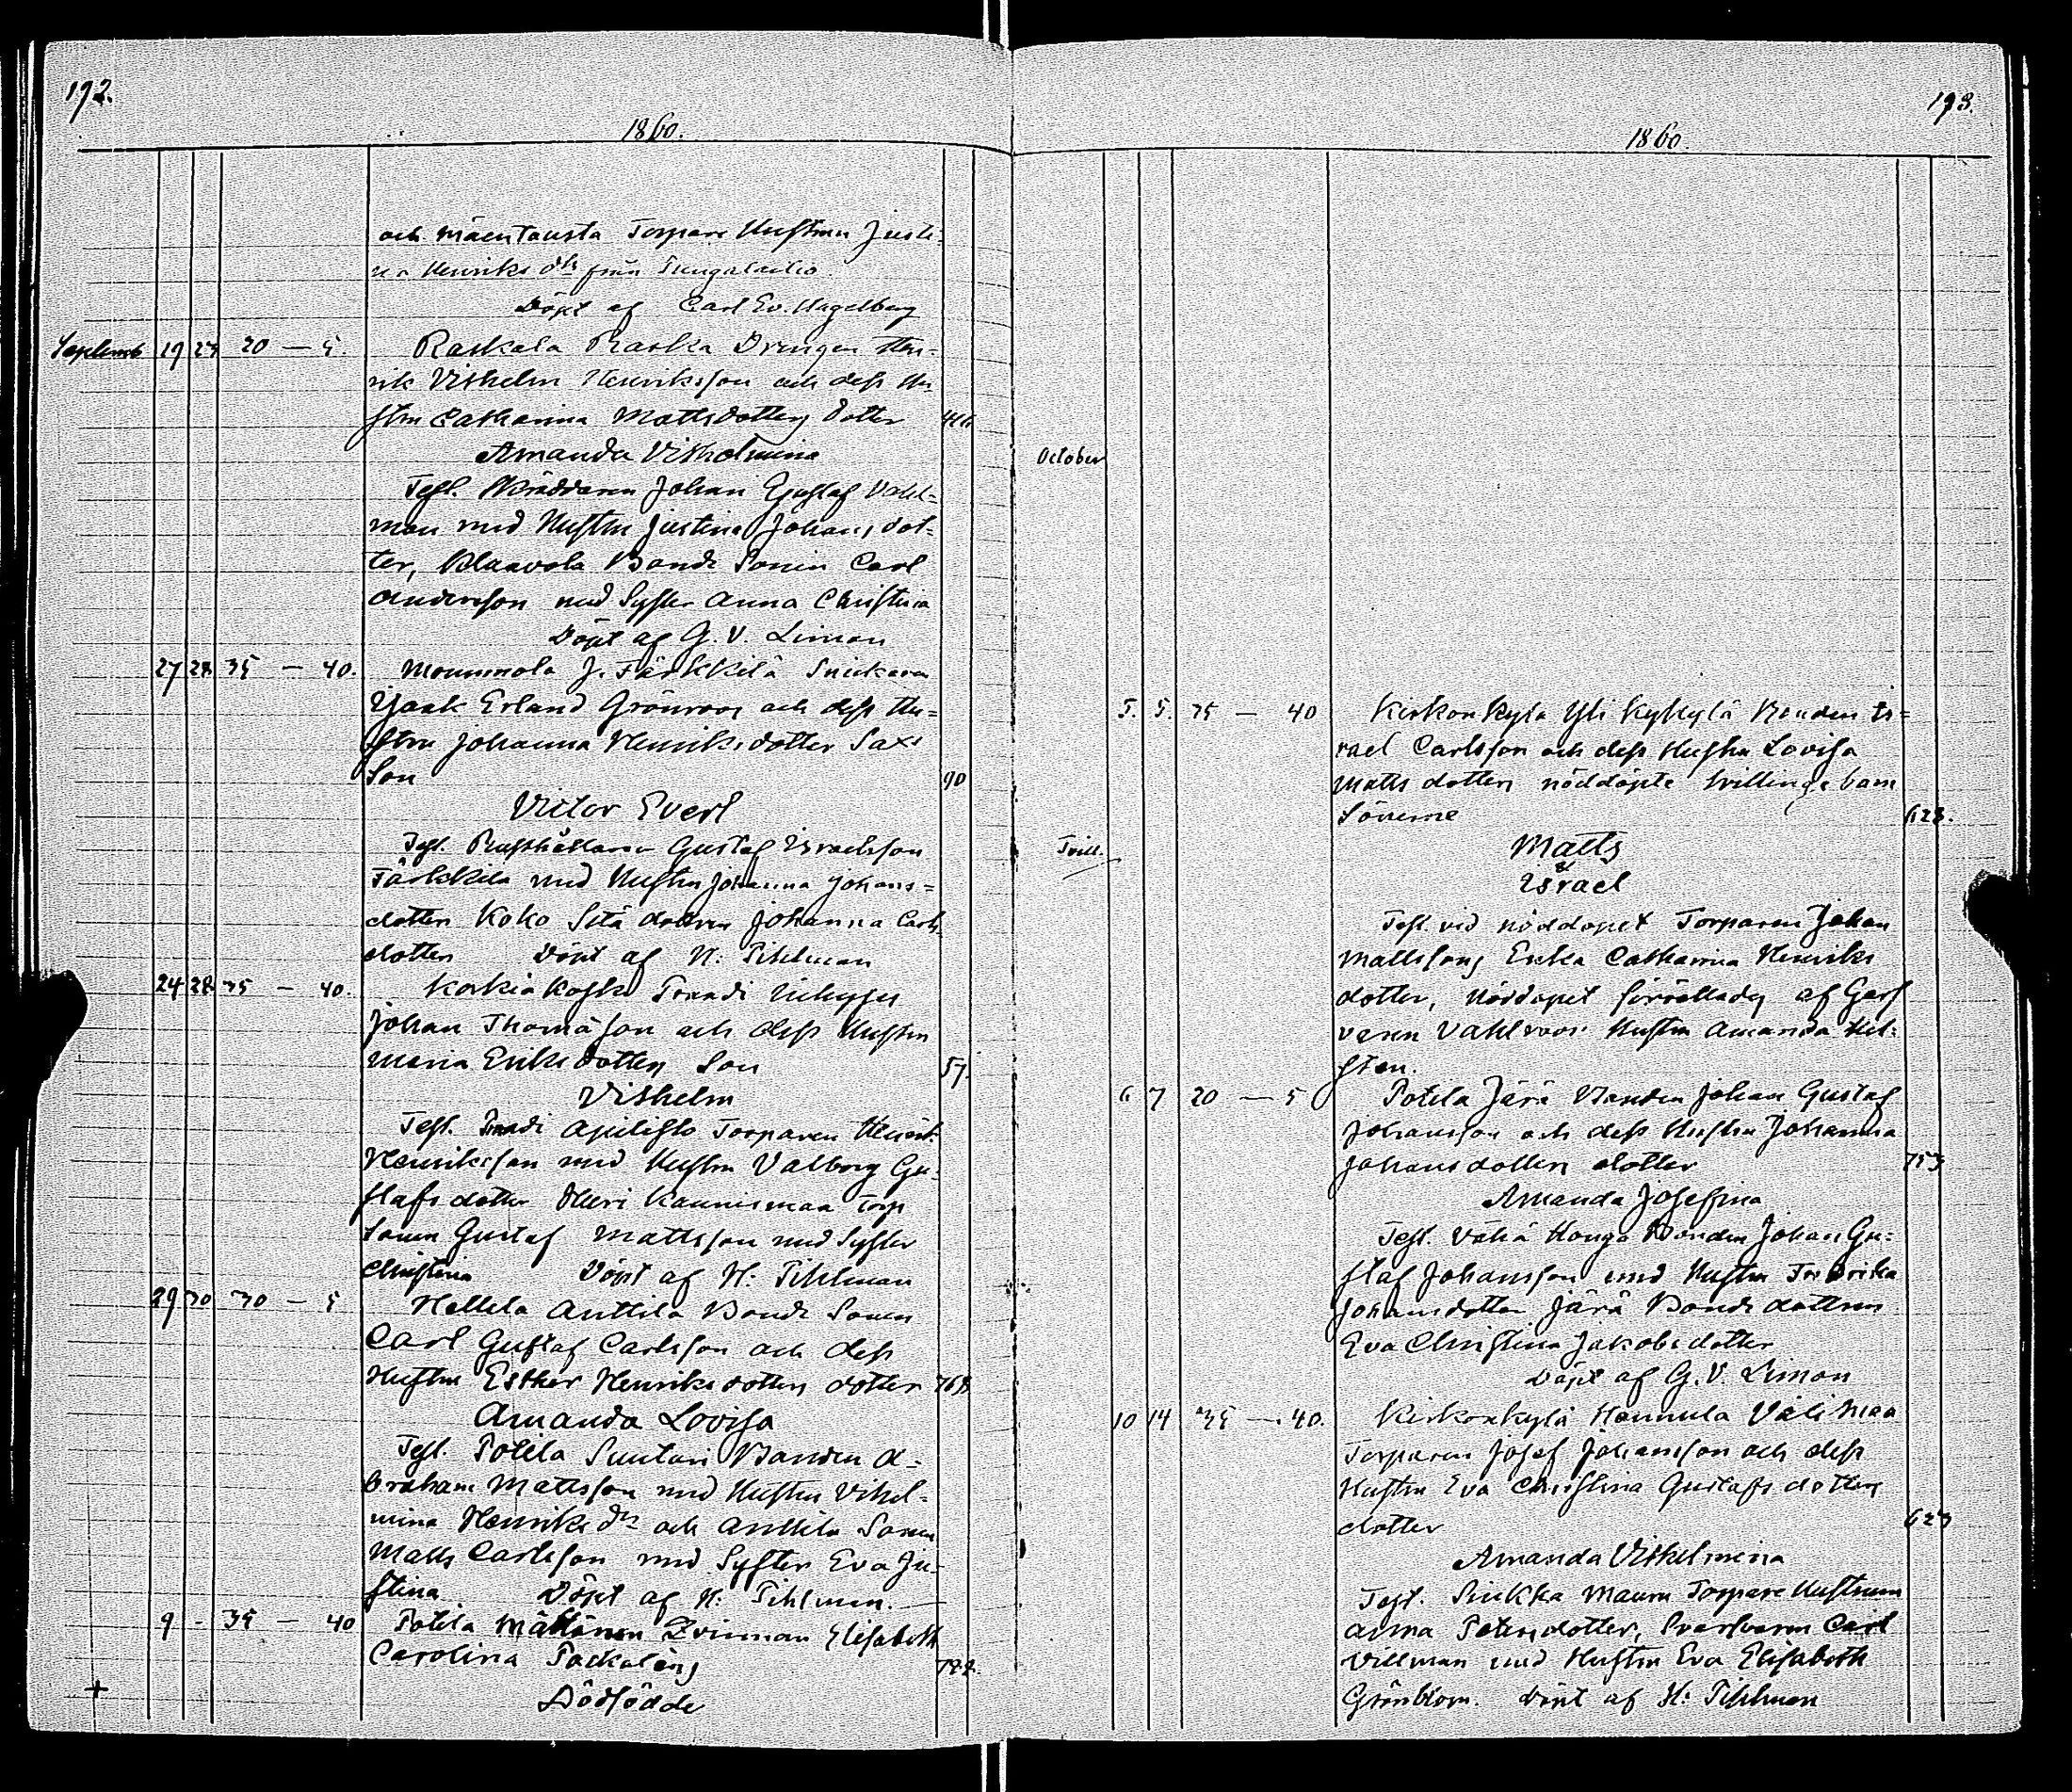 192.
1860.
och Mäentausta Torpare Hustrun Justi-
na Henriks dtr från Pungalaitio.
Döpt af Carl Ev. Hagelberg
Septemb 19 23 20 — 5. Raskala Raska Drengen Hen-
rik Vilhelm Henriksson och dess Hu-
stru Catharina Mattsdotters dotter
Amanda Vilhelmina
Test. Skräddaren Johan Gustaf Vahl-
man med Hustru Justina Johans dot-
ter, Klaavola Bonde Sonen Carl
Andersson med Syster Anna Christina
Döpt af G. V. Liman
27 28 35 — 40. Mommola J. Färkkilä Snickaren
Isaak Erland Grönroos och dess Hu-
stru Johanna Henriksdotter Sax:s
Son 90
Victor Evert
Test. Rusthållaren Gustaf Israelsson
Färkkilä med Hustru Johanna Johans-
dotter Koko Sitä dottren Johanna Carls
dotter Döpt af H. Pihlman
24 28 35 — 40. Korkia Koski
Johan Thomasson och dess Hustru
Maria Eriks dotters Son 57.
Vilhelm
Test. Torparen Henrik
Henriksson med Hustru Valborg Gu-
stafs dotter Kaunismaa Torp
Sonen Gustaf Mattsson med Syster
Christina Döpt af H: Pihlman
29 30 30 — 5 Hellela Anttila Bonde Sonen
Carl Gustaf Carlsson och dess
Hustru Esther Henriks dotters dotter
Amanda Lovisa
Test. Potila Suutari Bonden A-
braham Mattsson med Hustru Vilhel-
mina Henriks dtr och Anttila Sonen
Matts Carlsson med Syster Eva Ju-
stina Döpt af H: Pihlman. —
9 - 35 — 40 Potila Mättänen Qvinnan Elisabeth
Carolina
+ Dödfödde
193.
1860.
October
5. 5. 35 — 40 Kirkonkylä Yli Kyhylä Bonden Is-
rael Carlsson och dess Hustru Lovisa
Matts dotters nöddöpte tvillinge barn
Sönerne 623.
Tvill. Matts
&
Israel
Test. vid nöddopet Torparen Johan
Mattssons Enka Catharina Henriks
dotter, Nöddopet förrättades af Garf
varen Vahlroos Hustru Amanda Hel-
sten.
6 7 20 — 5 Potila Järä Bonden Johan Gustaf
Johansson och dess Hustru Johanna
Johansdotters dotter 753
Amanda Josefina
Test. Vähä Honga Bonden Johan Gu-
staf Johansson med Hustru Fredrika
Johansdotter Järä Bonde dottren
Eva Christina Jakobsdotter
Döpt af G. V. Liman
10 14 35 — 40. Kirkonkylä Hannula Välimaa
Torparen Josef Johansson och dess
Hustru Eva Christina Gustafs dotters
dotter 623
Amanda Vilhelmina
Test. Sukka Mauru Torpare Hustrun
Anna Petersdotter, Svarfvaren Carl
Villman med Hustru Eva Elisabeth
Grönblom. Döpt af H: Pihlman